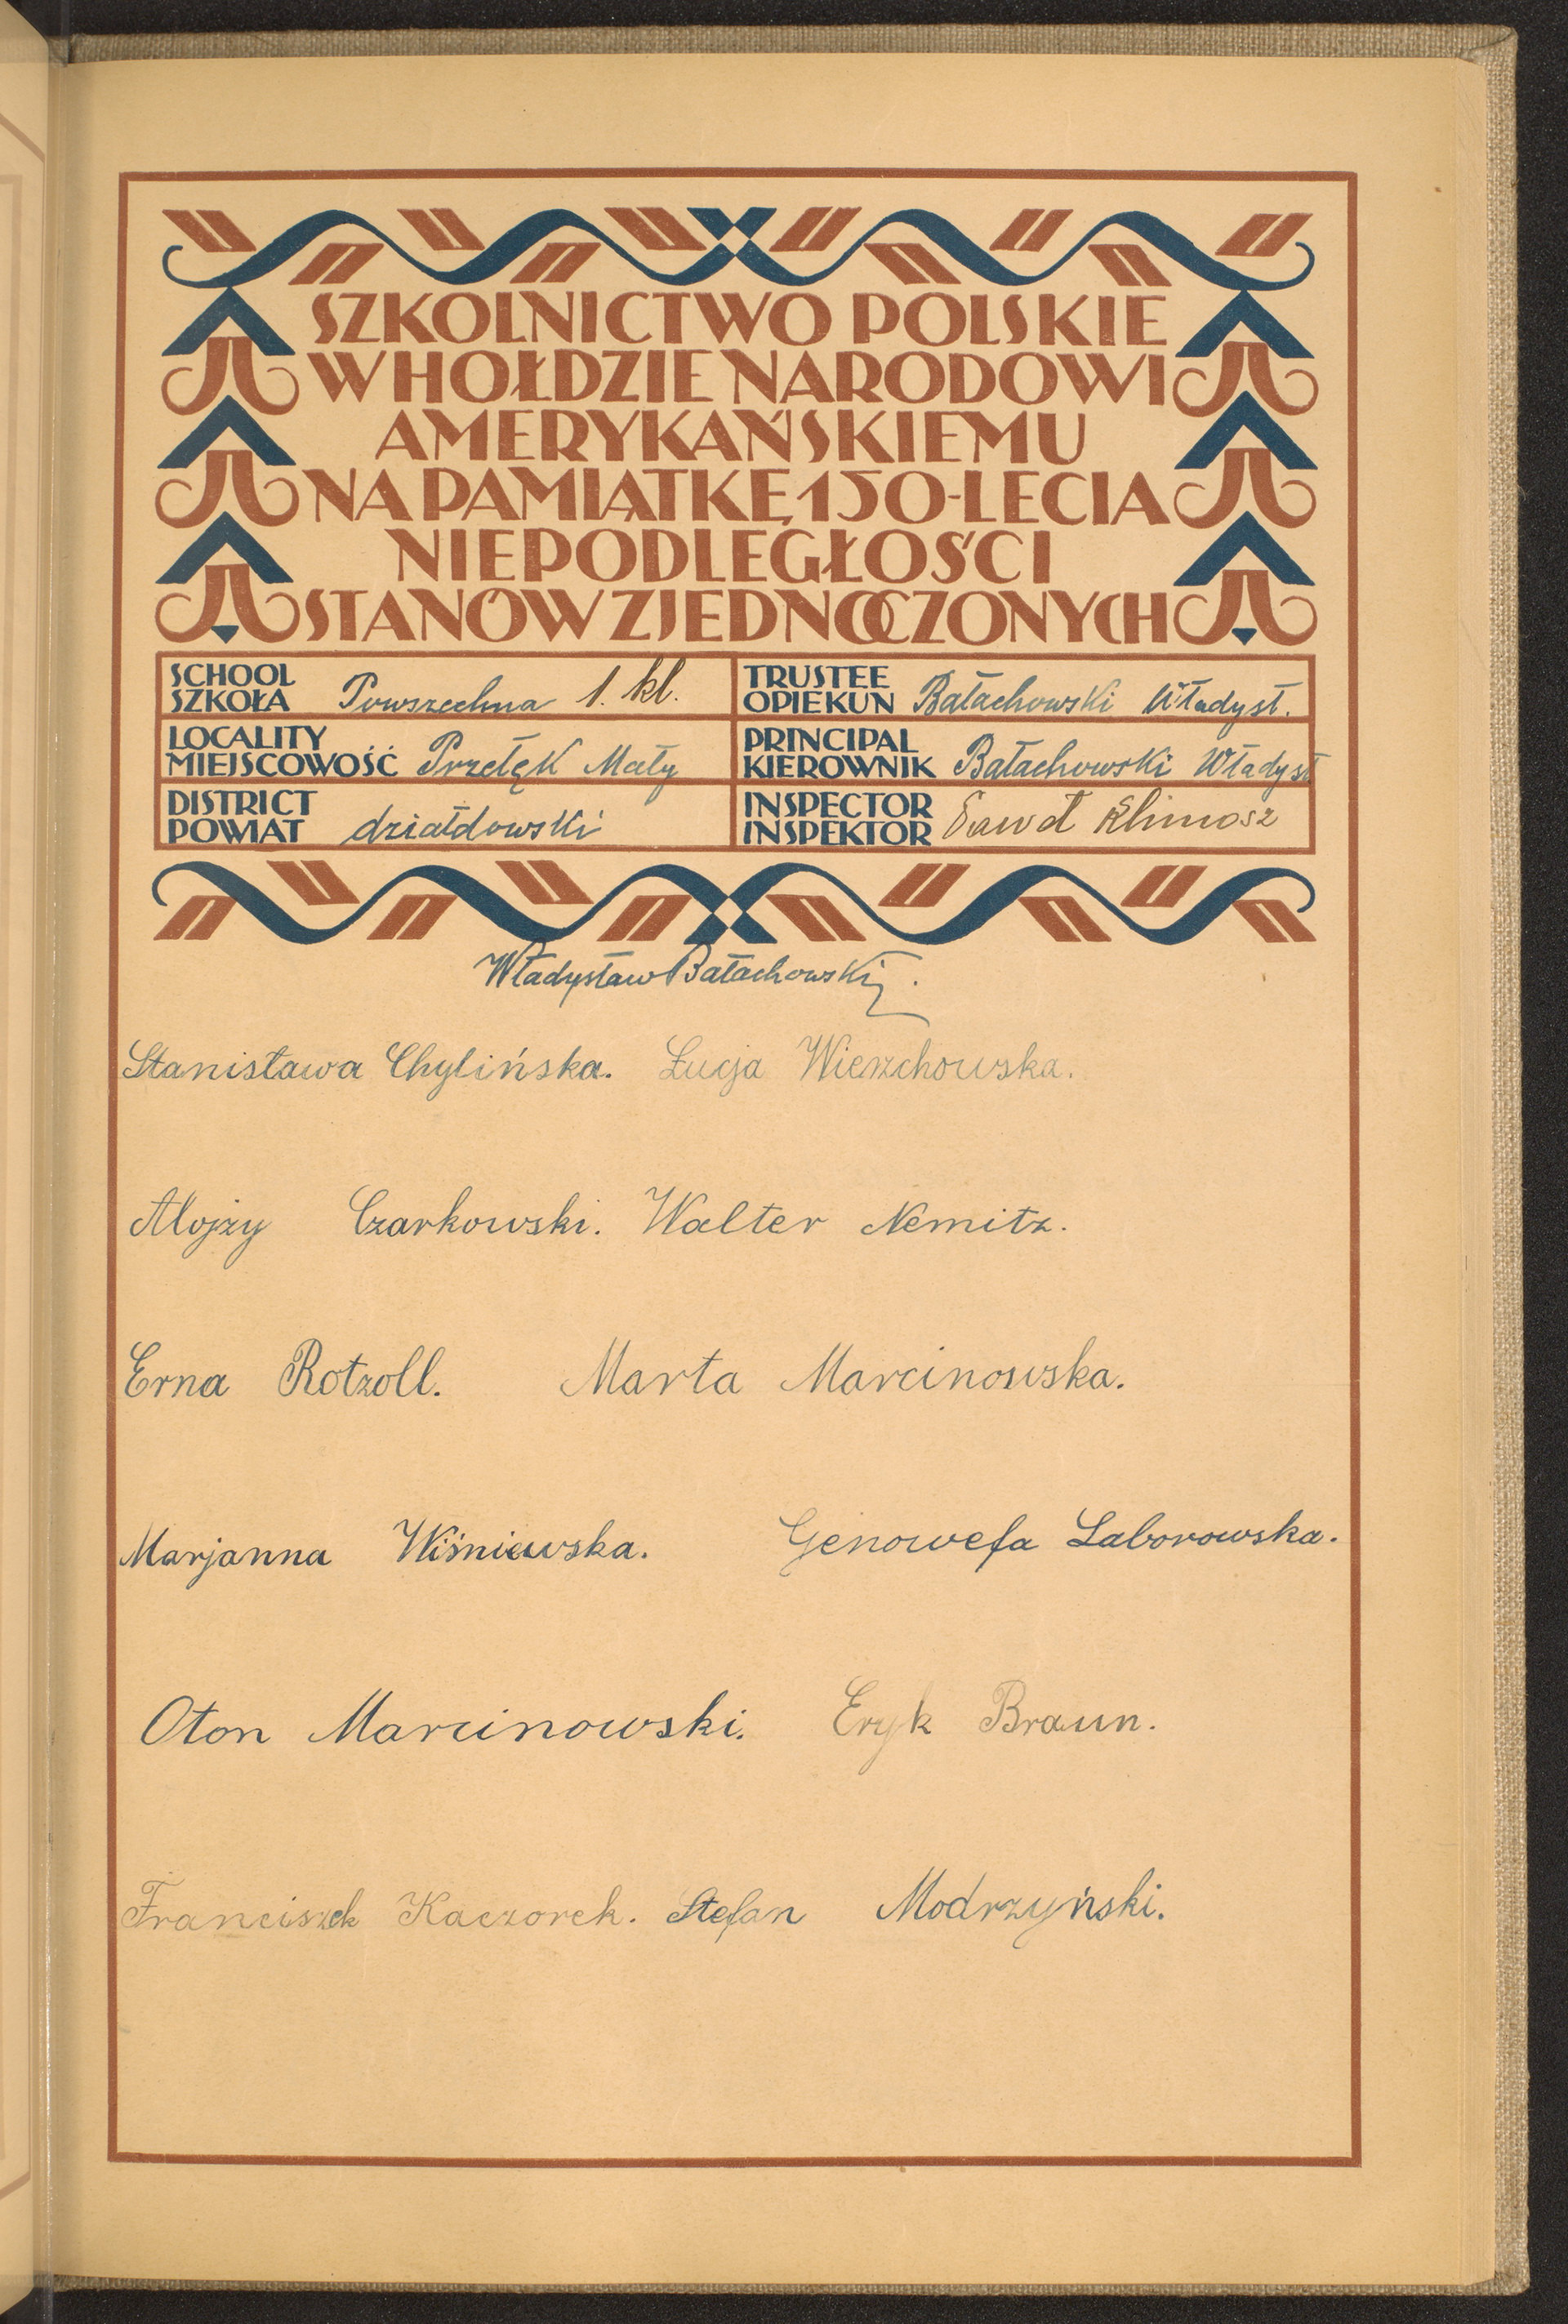 SZKOLNICTWO POLSKIE
W HOŁDZIE NARODOWI
AMERYKAŃSKIEMU
NA PAMIĄTKĘ 150-LECIA
NIEPODLEGŁOŚCI
STANÓW ZJEDNOCZONYCH
SCHOOL
SZKOŁA Powszechna 1. kl.
TRUSTEE
OPIEKUN Bałachowski Władysł.
LOCALITY
MIEJSCOWOŚĆ Przełęk Mały
PRINCIPAL
KIEROWNIK Bałachowski Władysł
DISTRICT
POWIAT działdowski
INSPECTOR
INSPEKTOR Paweł Klimosz
Władysław Bałachowski.
Stanisława Chylińska. Łucja Wieszchowska.
Alojzy Czarkowski. Walter Nemitz.
Erna Rotzoll. Marta Marcinowska.
Marjanna Wiśniewska. Genowefa Laborowska.
Oton Marcinowski. Eryk Braun.
Franciszek Kaczorek. Stefan Modrzyński.